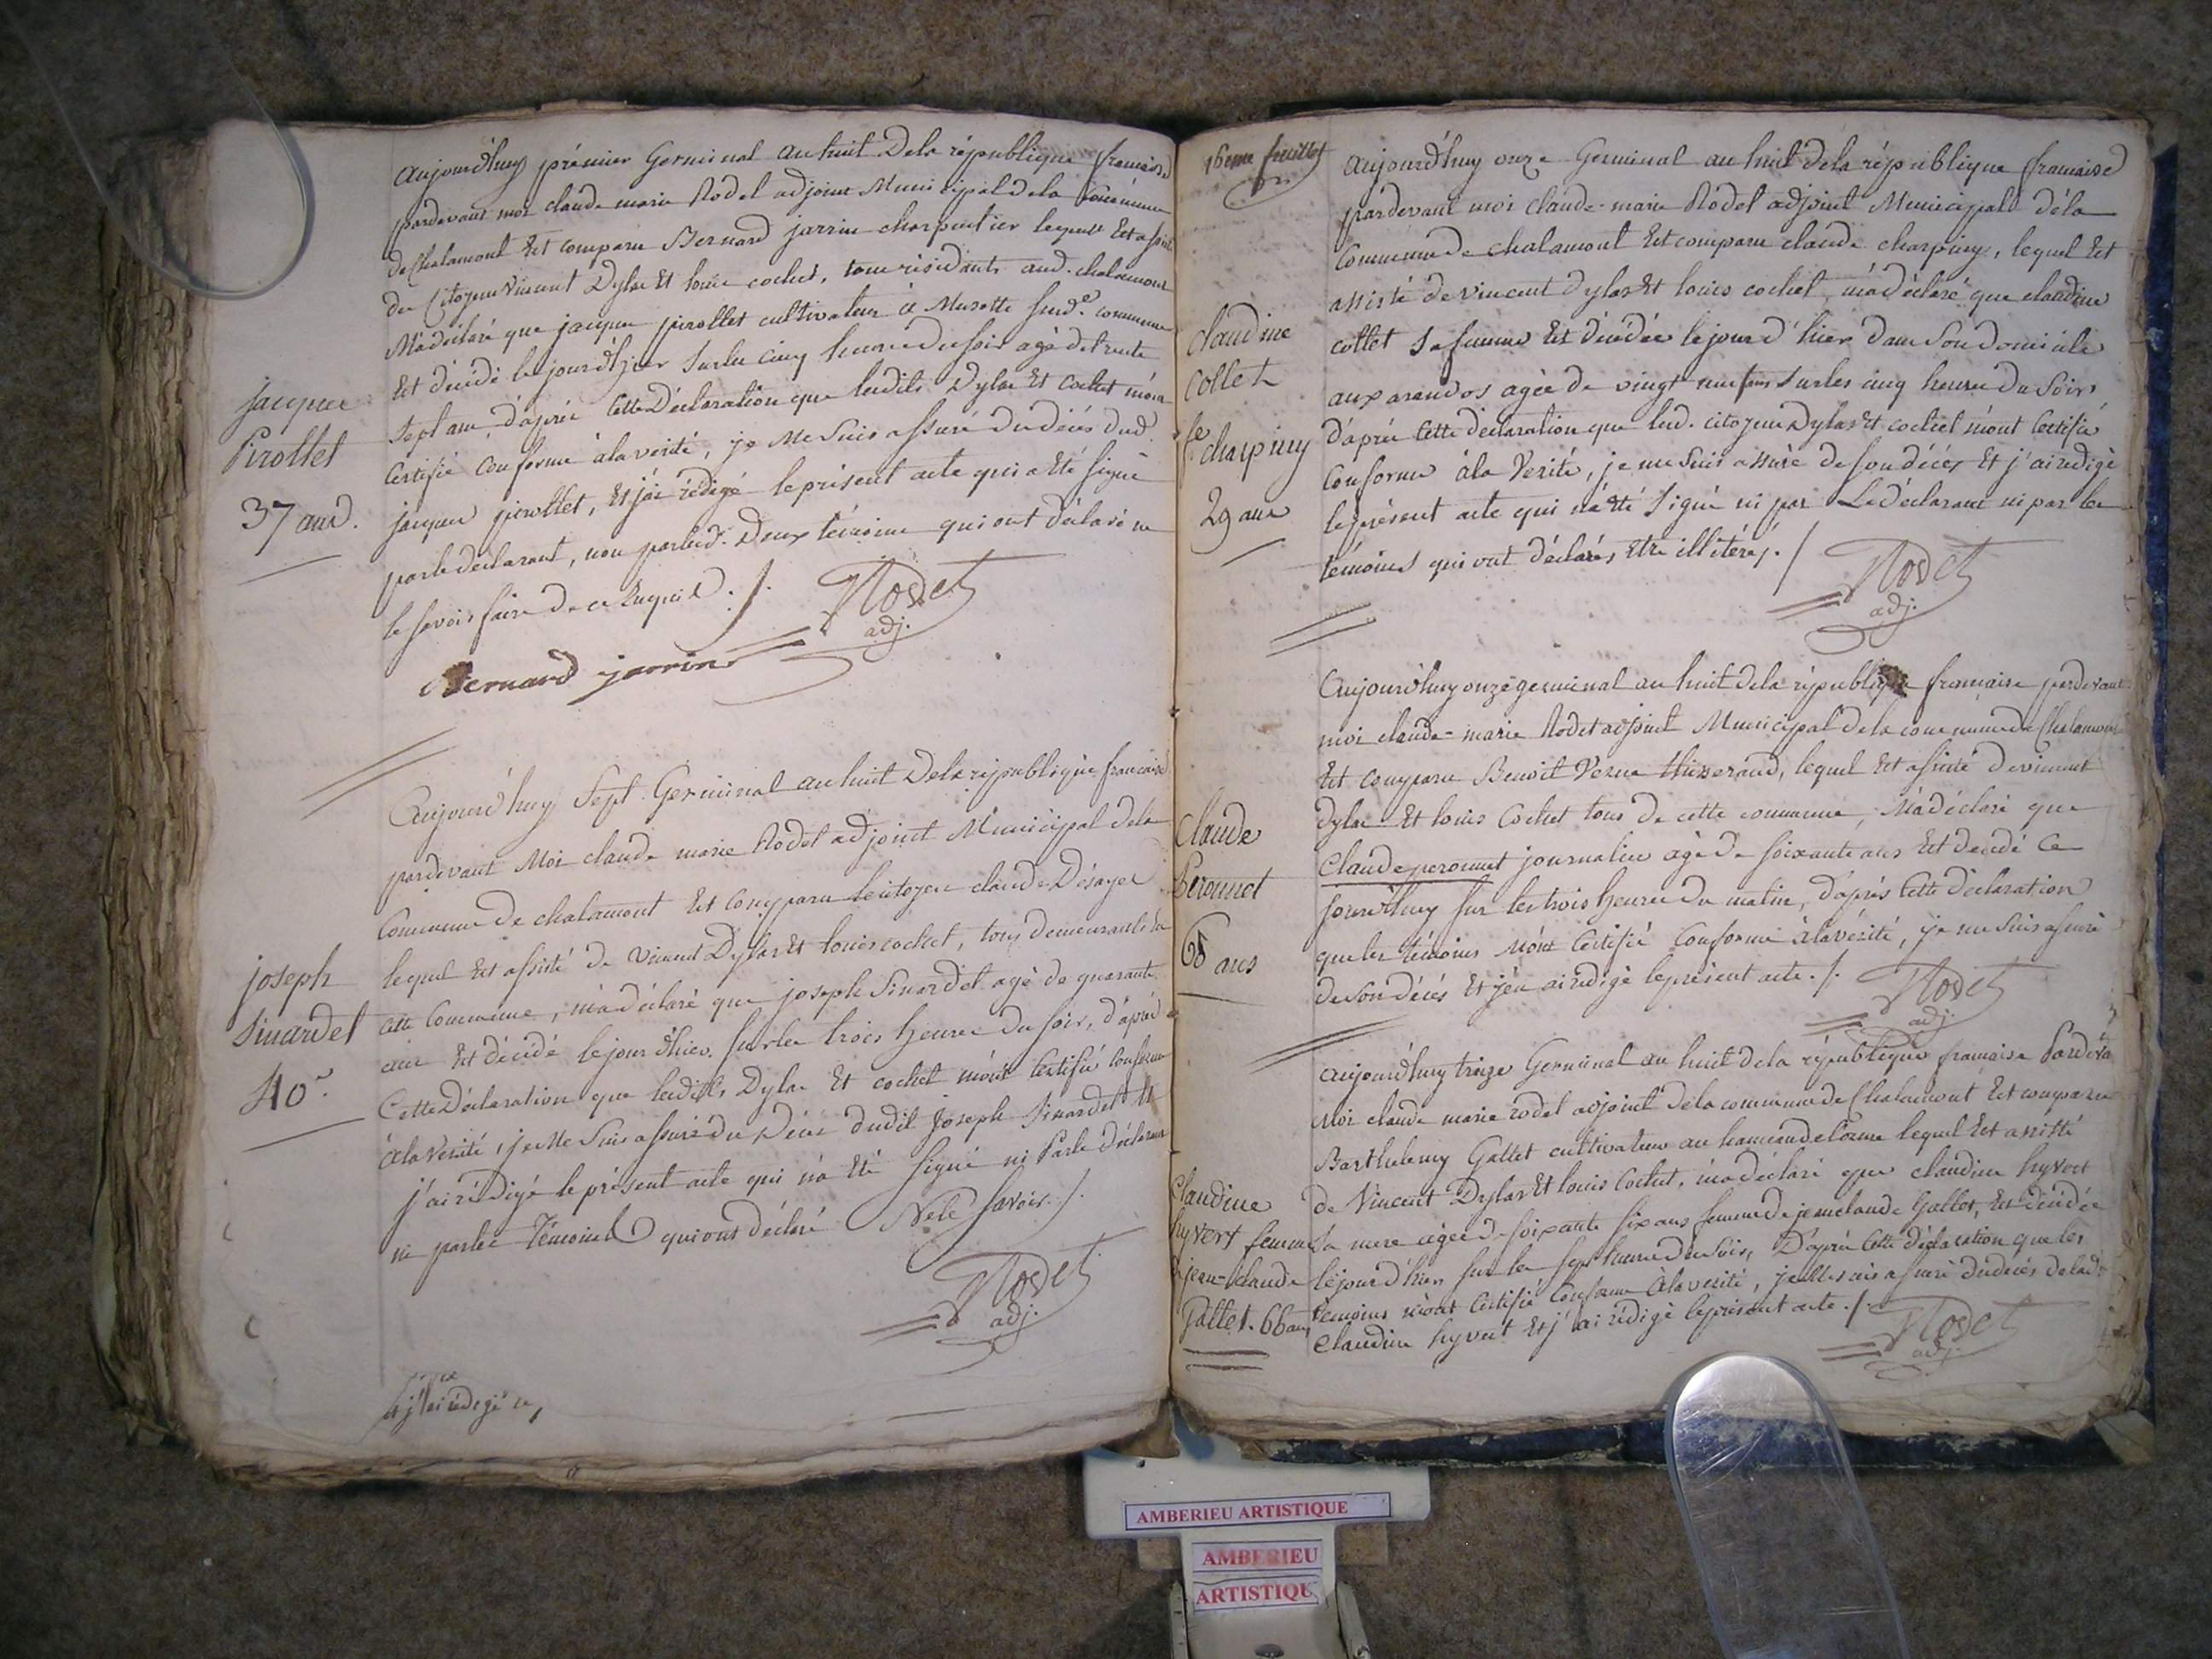 aujourdhuy prémier Germinal an huit Dela république francaise
pardevant moi claude marie Rodet adjoint Municipal dela Commune
de Chalamont Est comparu Bernard jarrin charpentier lequel Est assisté
du Citoyen Vincent Dylas Et louis cochet, tous résidants aud. chalamont
M'a déclaré que jacques pirollet cultivateur à Musotte surd.e commune
Est décédé le jourd'hier sur les cinq heures du soir agé de trente
sept ans, d'après cette Déclaration que lesdits Dylas Et Cochet m'ont
Certifié conforme à la vérité, je Me suis assuré du décés dud.
jacques pirollet, Et j'ai rédigé le présent acte qui a Eté signé
par le déclarant, non par lesd. Deux témoins qui ont déclaré ne
le savoir faire de ce Enquis ./.
Rodet
adj.
Bernard jarrin
jacques
Pirollet
37 ans.
Aujourd'huy Sept Germinal an huit Dela république francaise
pardevant Moi claude marie Rodet adjoint Municipal dela
Commune de chalamont Est comparu le citoyen claude Désayes
lequel Est assisté de Vincent Dylas Et louis cochet, tous demeurants En
cette Commune, m'a déclaré que joseph Sinardet agé de quarante
ans Est décédé le jour d'hier sur les trois heures du soir, d'après
Cette Déclaration que lesdits Dylas Et cochet m'ont Certifié conforme
à la Verité, je Me suis assuré du Décés dudit Joseph Sinardet Et
j'ai rédigé le présent acte qui n'a Eté signé ni Par le déclarant
ni par les Témoins qui ont déclaré Ne le savoir ./.
Rodet
adj.
joseph
Sinardet
40.
Et j'ai rédigé ce,
16eme feuillet
aujourd'huy onze Germinal an huit dela république francaise
pardevant moi claude-marie Rodet adjoint Municipal déla
Commune de chalamont Est comparu claude charpiny, lequel Est
assisté de Vincent Dylas Et louis cochet, m'a déclaré que claudine
collet sa femme Est décédée le jour d'hier dans son domicile
aux agée de vingt neuf ans sur les cinq heures du Soir,
d'après cette déclaration que lesd. citoyens Dylas Et cochet m'ont Certifié
Conforme à la Verité, je me suis assuré de son décés Et j'ai redigé
le présent acte qui n'a été signé ni par Le déclarant ni par les
témoins qui ont déclarés Etre illiterés. /
Rodet
adj.
claudine
collet
fe. charpiny
29 ans
Aujourd'huy onze germinal an huit dela république francaise pardevant
moi claude-marie Rodet adjoint Municipal dela commune de Chalamont
Est comparu Benoit Verne thisserand, lequel Est assisté de vincent
dylas Et louis Cochet tous de cette commune, M'a déclaré que
Claude peronnet journalier agé de soixante ans Est décédé Ce
jourd'huy sur les trois heures du matin, d'après Cette déclaration
que les témoins m'ont Certifié Conforme à la vérité, je me suis assuré
de son décés Et j'en ai rédigé le présent acte ./.
Rodet
adj.
Claude
Peronnet
60 ans
aujourd'huy treize Germinal an huit dela république francaise Pardeva
Moi claude marie rodet adjoint dela commune de Chalamont Est comparu
Barthelemy Gallet cultivateur au hameau de lorme lequel Est assisté
de Vincent Dylas Et louis Cochet, m'a déclaré que claudine hyvert
sa mere agée de soixante six ans femme de jean claude Gallet, Est décédée
le jour d'hier sur les sept heures du Soir, D'après Cette déclaration que les
témoins m'ont Certifié Conforme à la verité, je Me suis assuré du décés de lad.
Claudine hyvert Et j'ai rédigé le présent acte ./.
Rodet
adj.
Claudine
hyvert femme
de jean-claude
Gallet. 66 ans
AMBERIEU ARTISTIQUE
AMBERIEU
ARTISTIQU